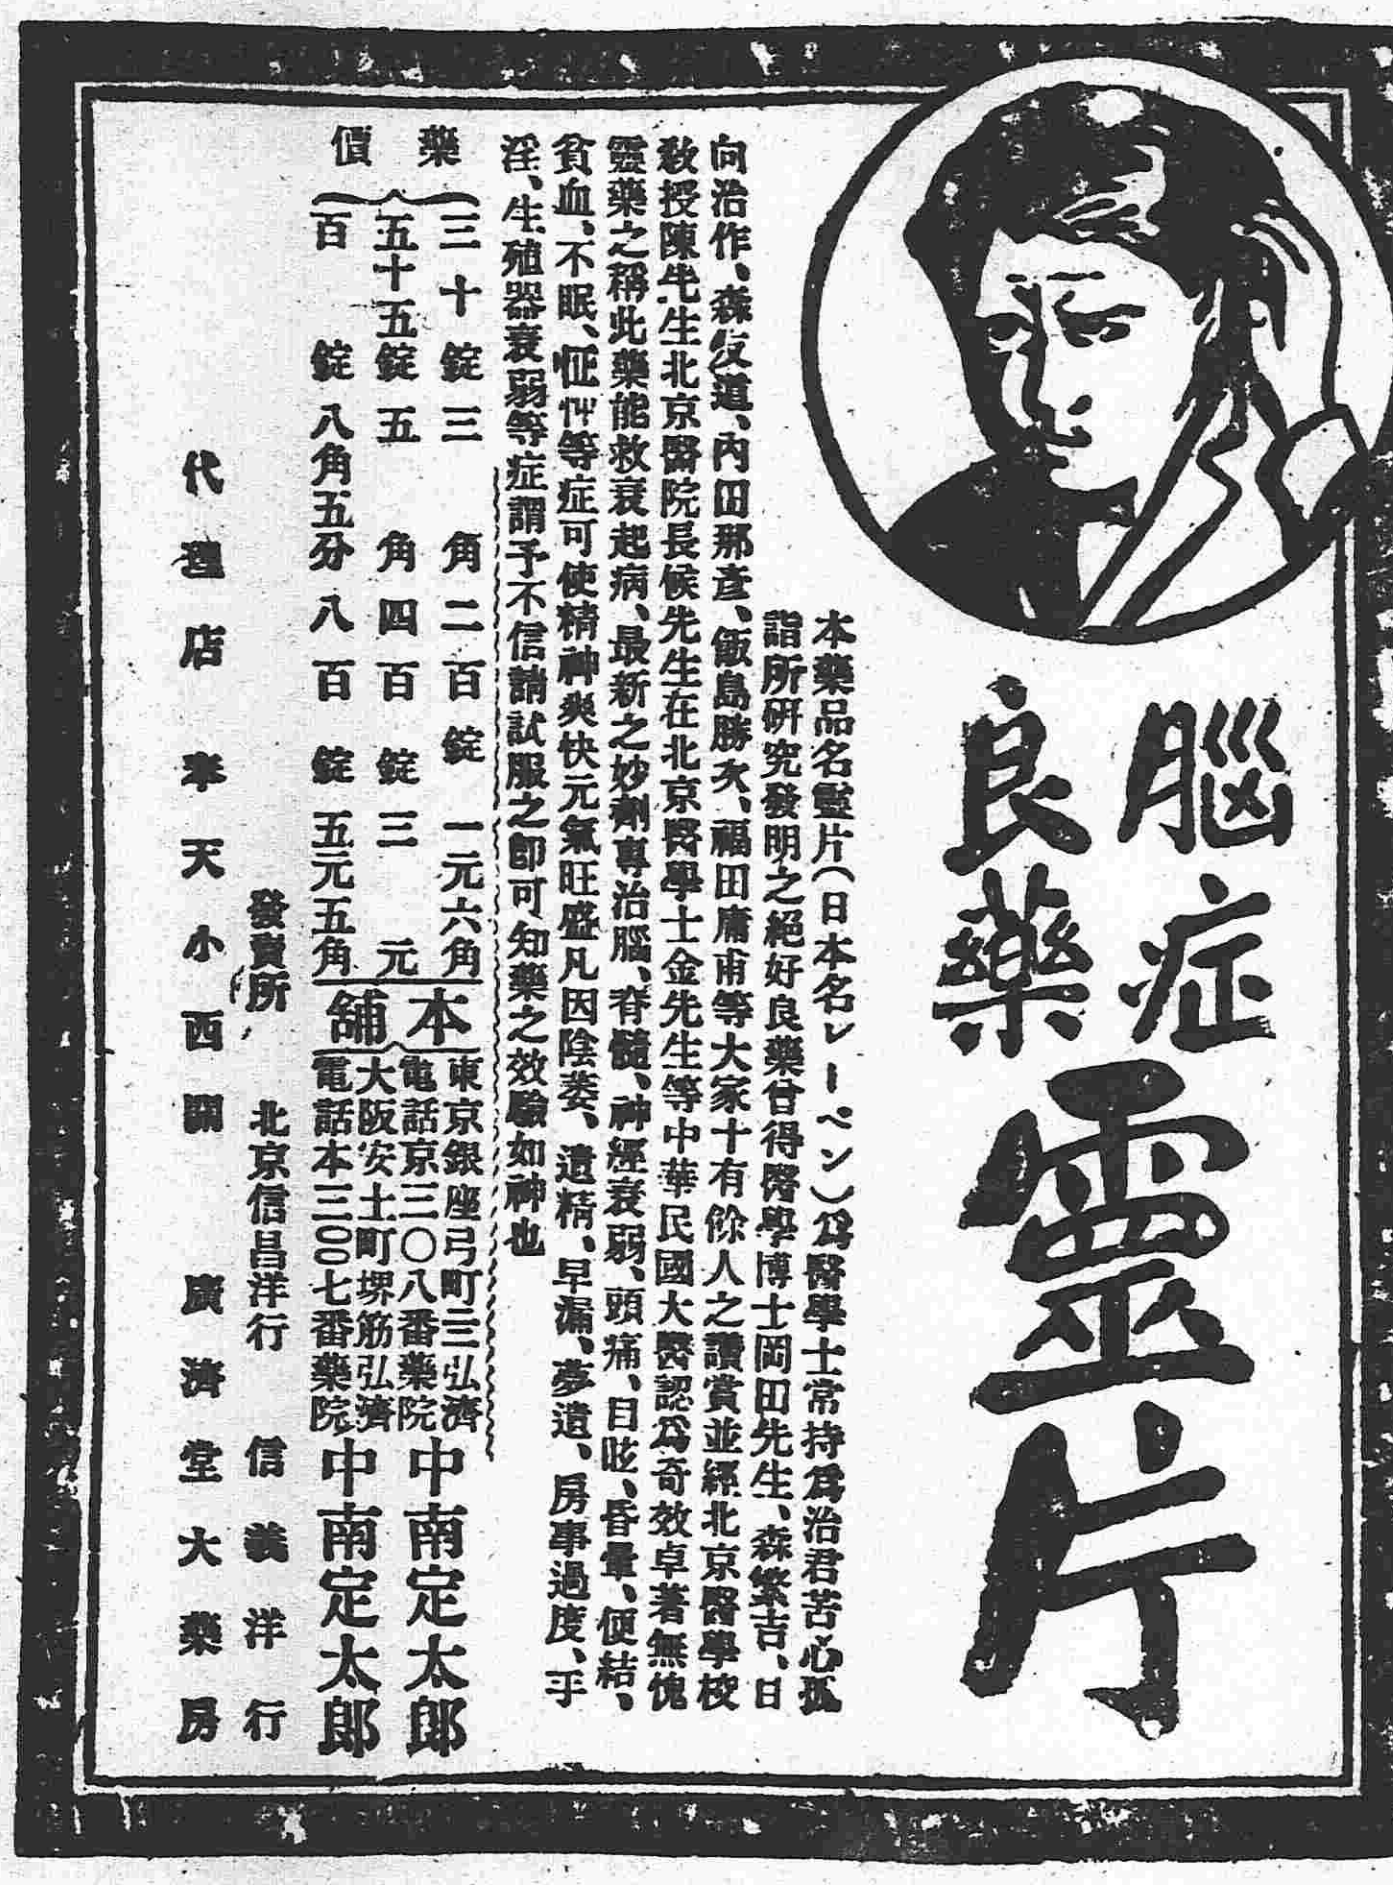 腦症
良藥
靈片
本藥品名靈片(日本名レーベン)爲醫學士常持爲治君苦心孤
詣所研究發明之絕好良藥曾得醫學博士岡田先生、森繁吉、日
向治作、森友道、內田那彥、飯島勝次、福田庸甫等大家十有餘人之讚賞並經北京醫學校
敎授陳先生北京醫院長候先生在北京醫學士金先生等中華民國大醫認爲奇效卓著無愧
靈藥之稱此藥能救衰起病、最新之妙劑專治腦、脊髓、神經衰弱、頭痛、目眩、昏暈、便結、
貧血、不眠、怔忡等症可使精神爽快元氣旺盛凡因陰萎、遺精、早漏、夢遺、房事過度、手
淫、生殖器衰弱等症謂予不信請試服之卽可知藥之效驗如神也
藥價
三十錠三角二百錠一元六角
五十五錠五角四百錠三元
百錠八角五分八百錠五元五角
本舖
東京銀座弓町三弘濟
電話京三〇八番藥院
中南定太郎
大阪安土町堺筋弘濟
電話本三〇〇七番藥院
中南定太郎
發賣所 北京信昌洋行 信義洋行
代理店 奉天小西關 廣濟堂大藥房